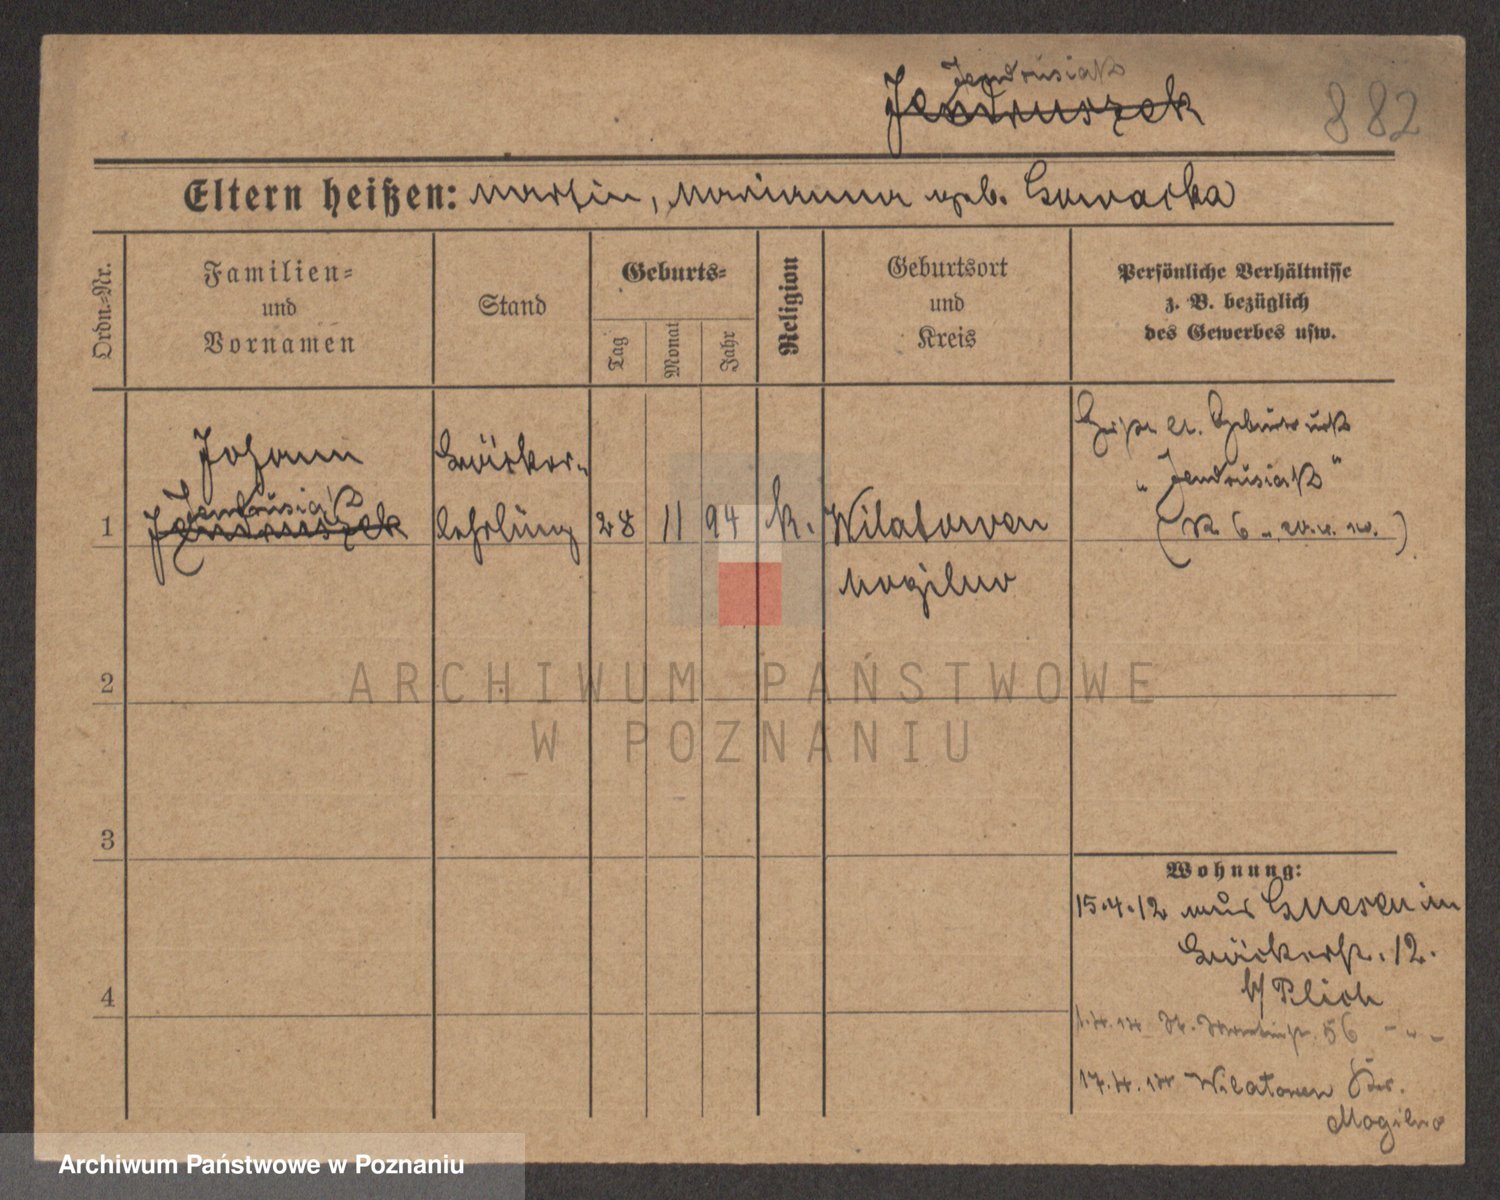 Jendrusiak
Jendruszek
882
Eltern heißen: Martin, Marianna geb. Gowacka
Ordn.=Nr.
Familien=
und
Vornamen
Stand
Geburts=
Tag
Monat
Jahr
Religion
Geburtsort
und
Kreis
Persönliche Verhältnisse
z. B. bezüglich
des Gewerbes usw.
1
Johann
Jendrusiak
Jendruszek
Bäcker-
lehrling
28 11 94 k.
Wilatowen
Mogilno
Geburts
"Jendrusiak"
2
3
4
Wohnung:
15.4.12 aus Gnesen in
Bäckerstr. 12.
b/ Plich
1.4.14 St. Martinstr. 56 " " "
17.4.14 Wilatowen Krs.
Mogilno
ARCHIWUM PAŃSTWOWE
W POZNANIU
Archiwum Państwowe w Poznaniu